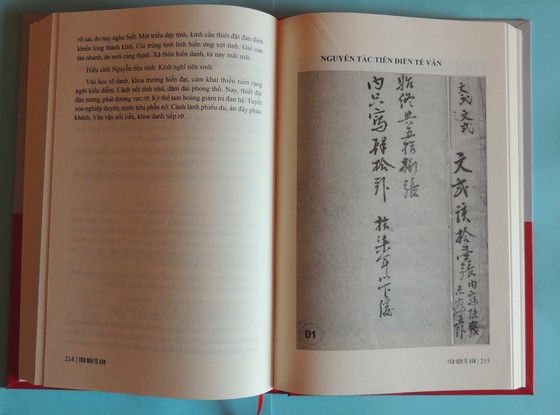 rỡ sao, do nay nghe biết. Một triều dạy tính, kính cẩn thiết đặt đàn điềm
khiến lòng thành kính. Cúi trông tinh linh hiển ứng xét tình. Giỏi
tân nhanh, ân mới càng thịnh. Xả thôn hiển danh, từ nay mãi mãi.
Hiệu sinh Nguyễn tiên sinh. Kính nghĩ tiên sinh:
Văn học rỡ danh, khoa trường hiển đạt, cảm khái thiếu niên rạng
ngời kiểu điểm. Cảnh nổi tính nhà, dặm dài phong thổ. Nay, thiết đặt
đàn mừng, phát dương rực rỡ. Kỳ thể tam hoàng giám tri đan hệ. Tuyết
xóa nghiệp duyên, nước tiêu phiền não. Cảnh lành phiêu du, ân dày phúc
khánh. Văn vận nối liền, khoa danh tiếp rỡ.
214 | TIÊN ĐIỀN TẾ VĂN
NGUYÊN TÁC TIÊN ĐIỀN TẾ VĂN
文式文式
文式該拾壹張內寫陸張
始終共五拾捌張
內只寫肆拾
01
TIÊN ĐIỀN TẾ VĂN | 215